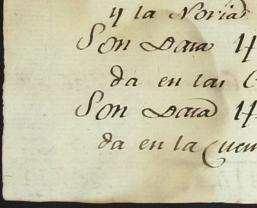 y la Noria
Son Data
da en las
Son Data
da en la Cuen